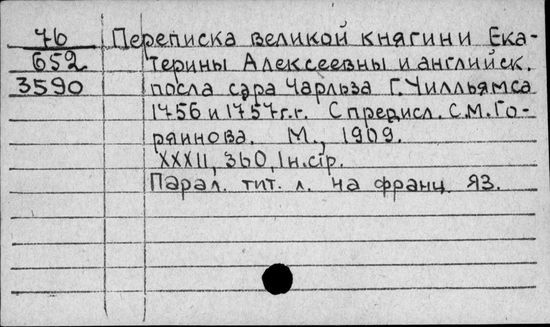 76 Переписка великой княгини Ека-
652 терины Алексеевны и английск.
3590 посла сэра Чарльза Г. Уилльямса
1756 и 1757г.г. С предисл. С.М. Го-
ряинова. М., 1909.
XXXII, 360, 1н.стр.
Парал. тит. л. на франц. яз.